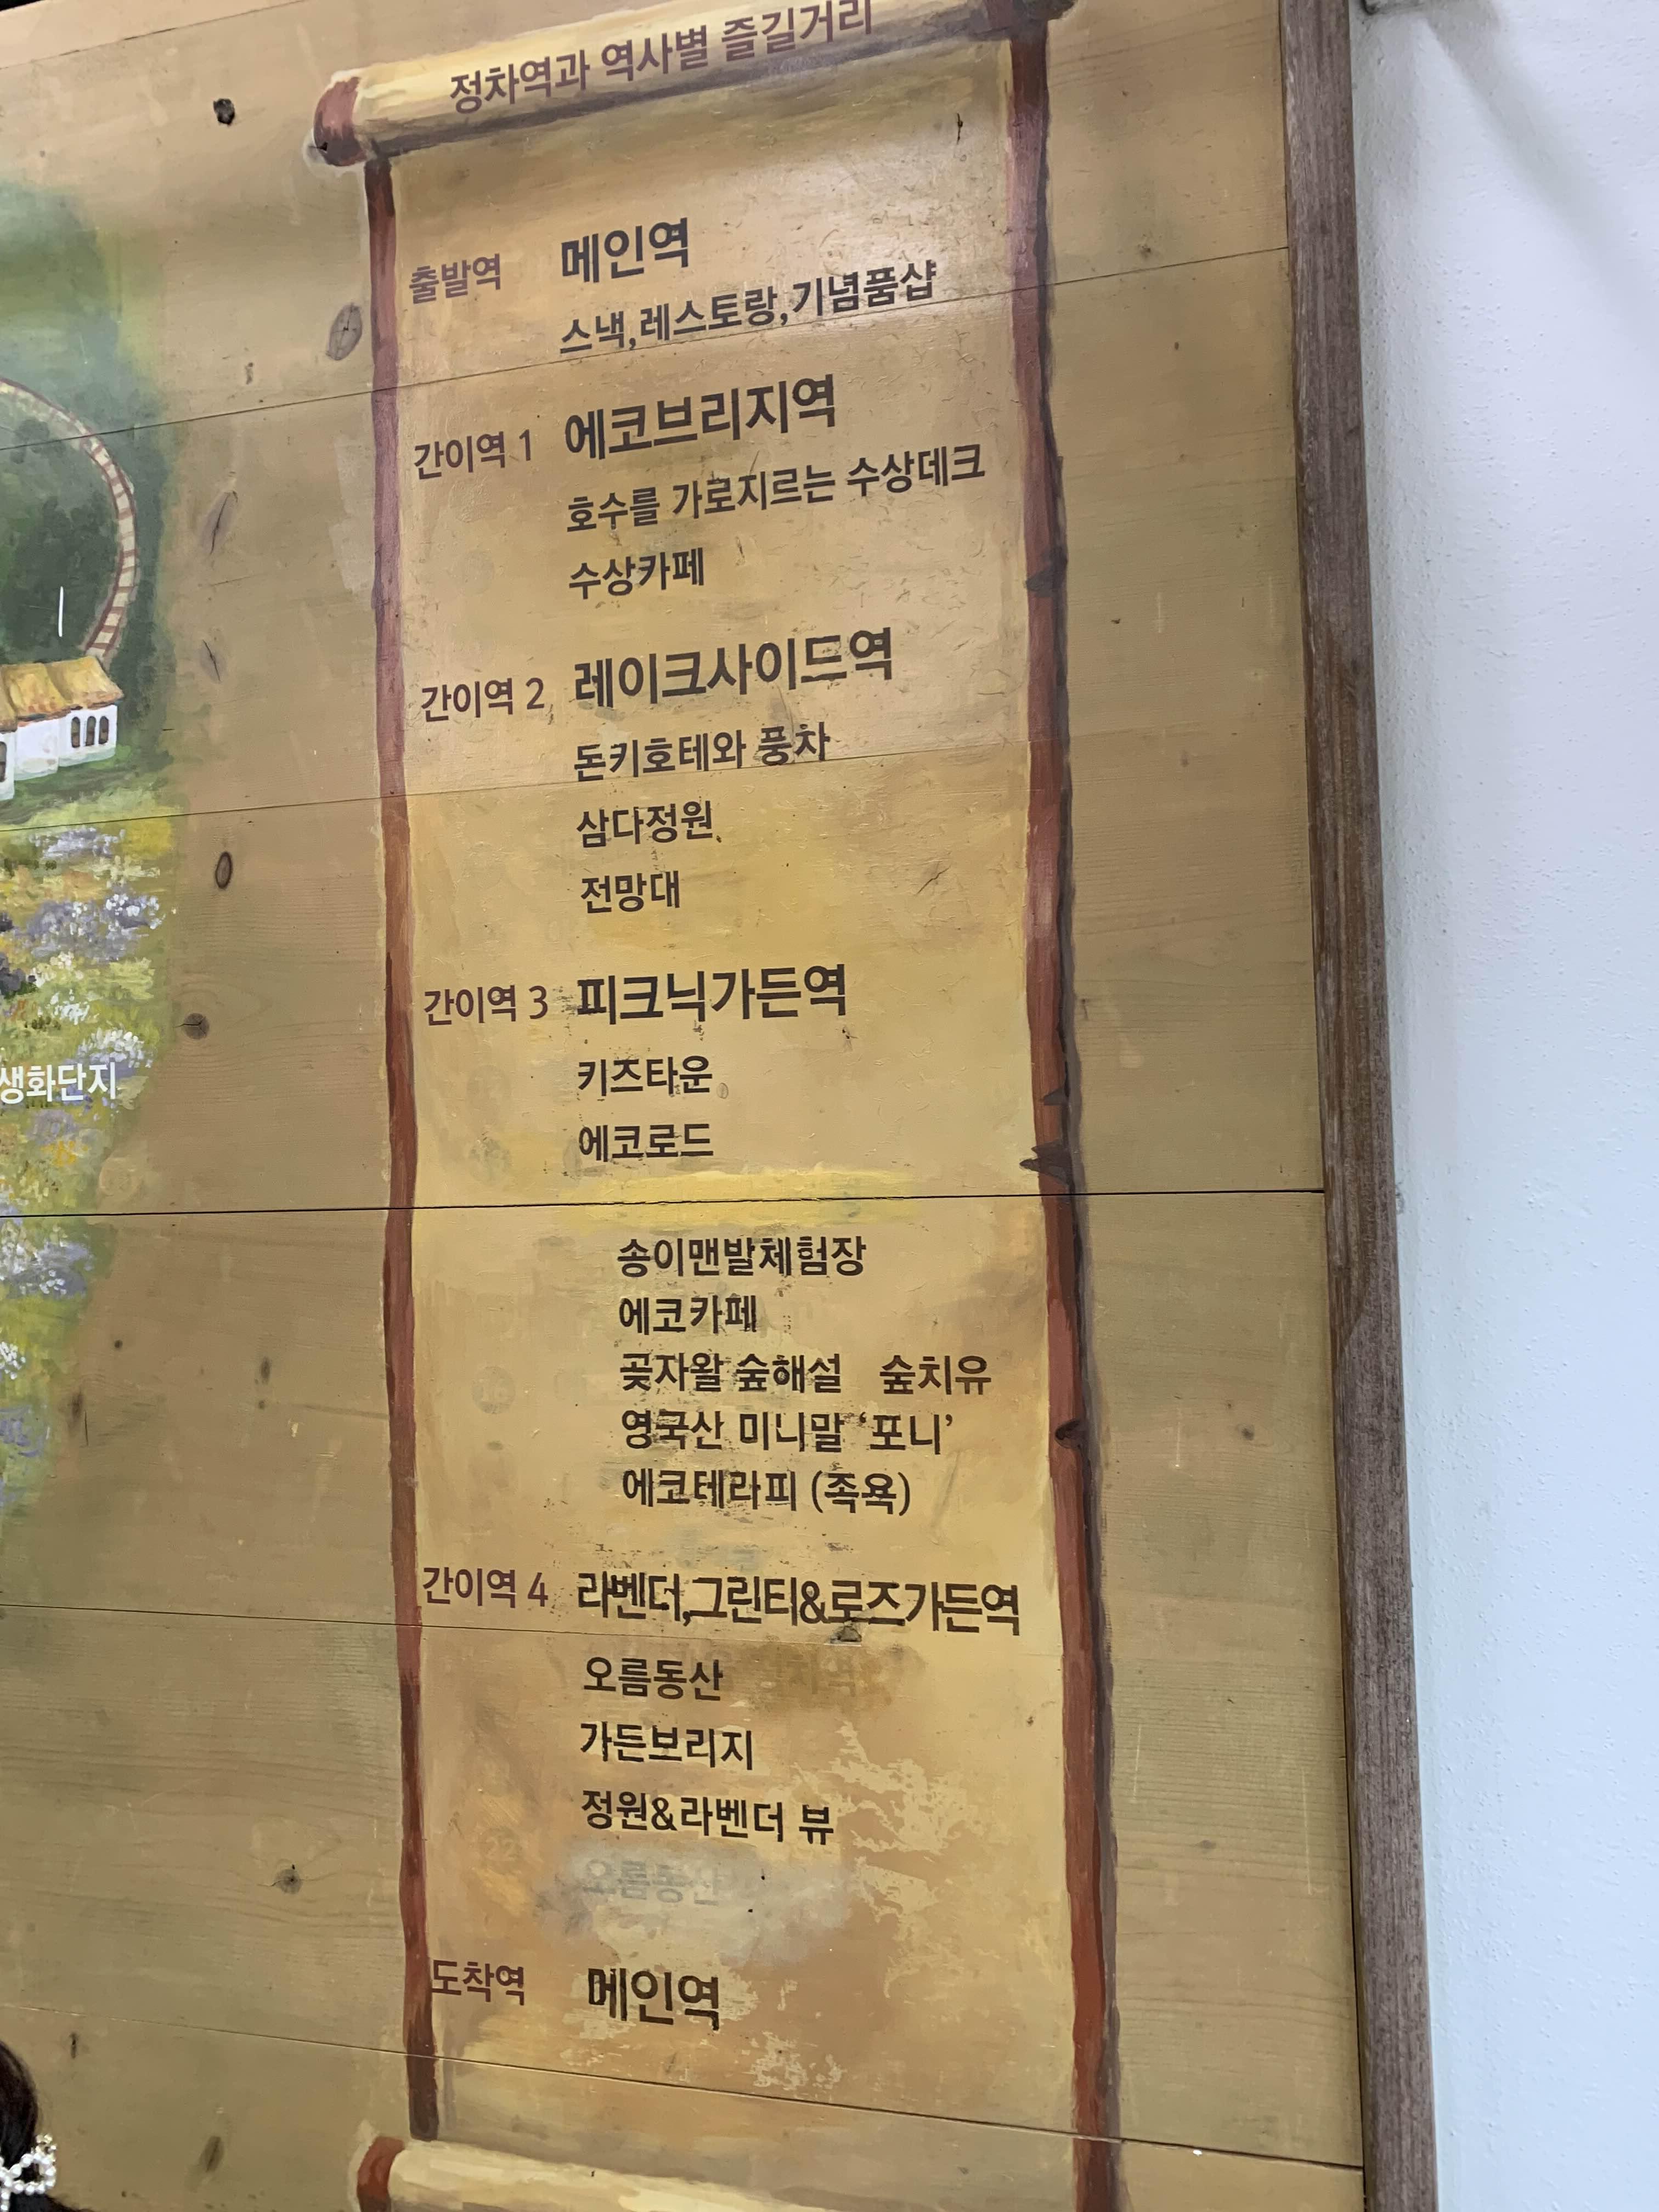 정차역과 역사별 즐길거리
출발역 메인역
스낵,레스토랑,기념품샵
간이역 1 에코브리지역
호수를 가로지르는 수상데크
수상카페
간이역 2 레이크사이드역
돈키호테와 풍차
삼다정원
전망대
간이역 3 피크닉가든역
키즈타운
에코로드
생화단지
송이맨발체험장
에코카페
곶자왈 숲해설 숲치유
영국산 미니말 ‘포니’
에코테라피 (족욕)
간이역 4 라벤더,그린티&로즈가든역
오름동산
가든브리지
정원&라벤더 뷰
오름동산
도착역 메인역